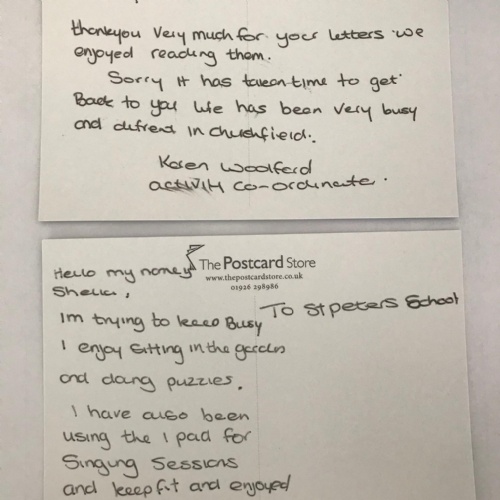 thankyou very much for your letters we
enjoyed reading them.
Sorry it has taken time to get
Back to you life has been very busy
and difrent in Churchfield.
Karen Woolford
activity co-ordinate.
The Postcard Store
www.thepostcardstore.co.uk
01926 298986
Hello my name
Sheila,
To St peters School
Im trying to keep Busy
I enjoy sitting in the garden
and doing puzzles.
I have also been
using the I pad for
Singing Sessions
and keepfit and enjoyed